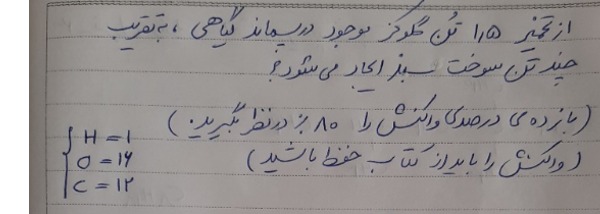 از تخمیر ۱,۵ تُن گلوکز موجود در پسماند گیاهی ، به تقریب
چند تُن سوخت سبز ایجاد می شود؟
(بازده ی درصدی واکنش را ۸۰٪ در نظر بگیرید.)
(واکنش را باید از کتاب حفظ باشید)
H = 1
O = 16
C = 12